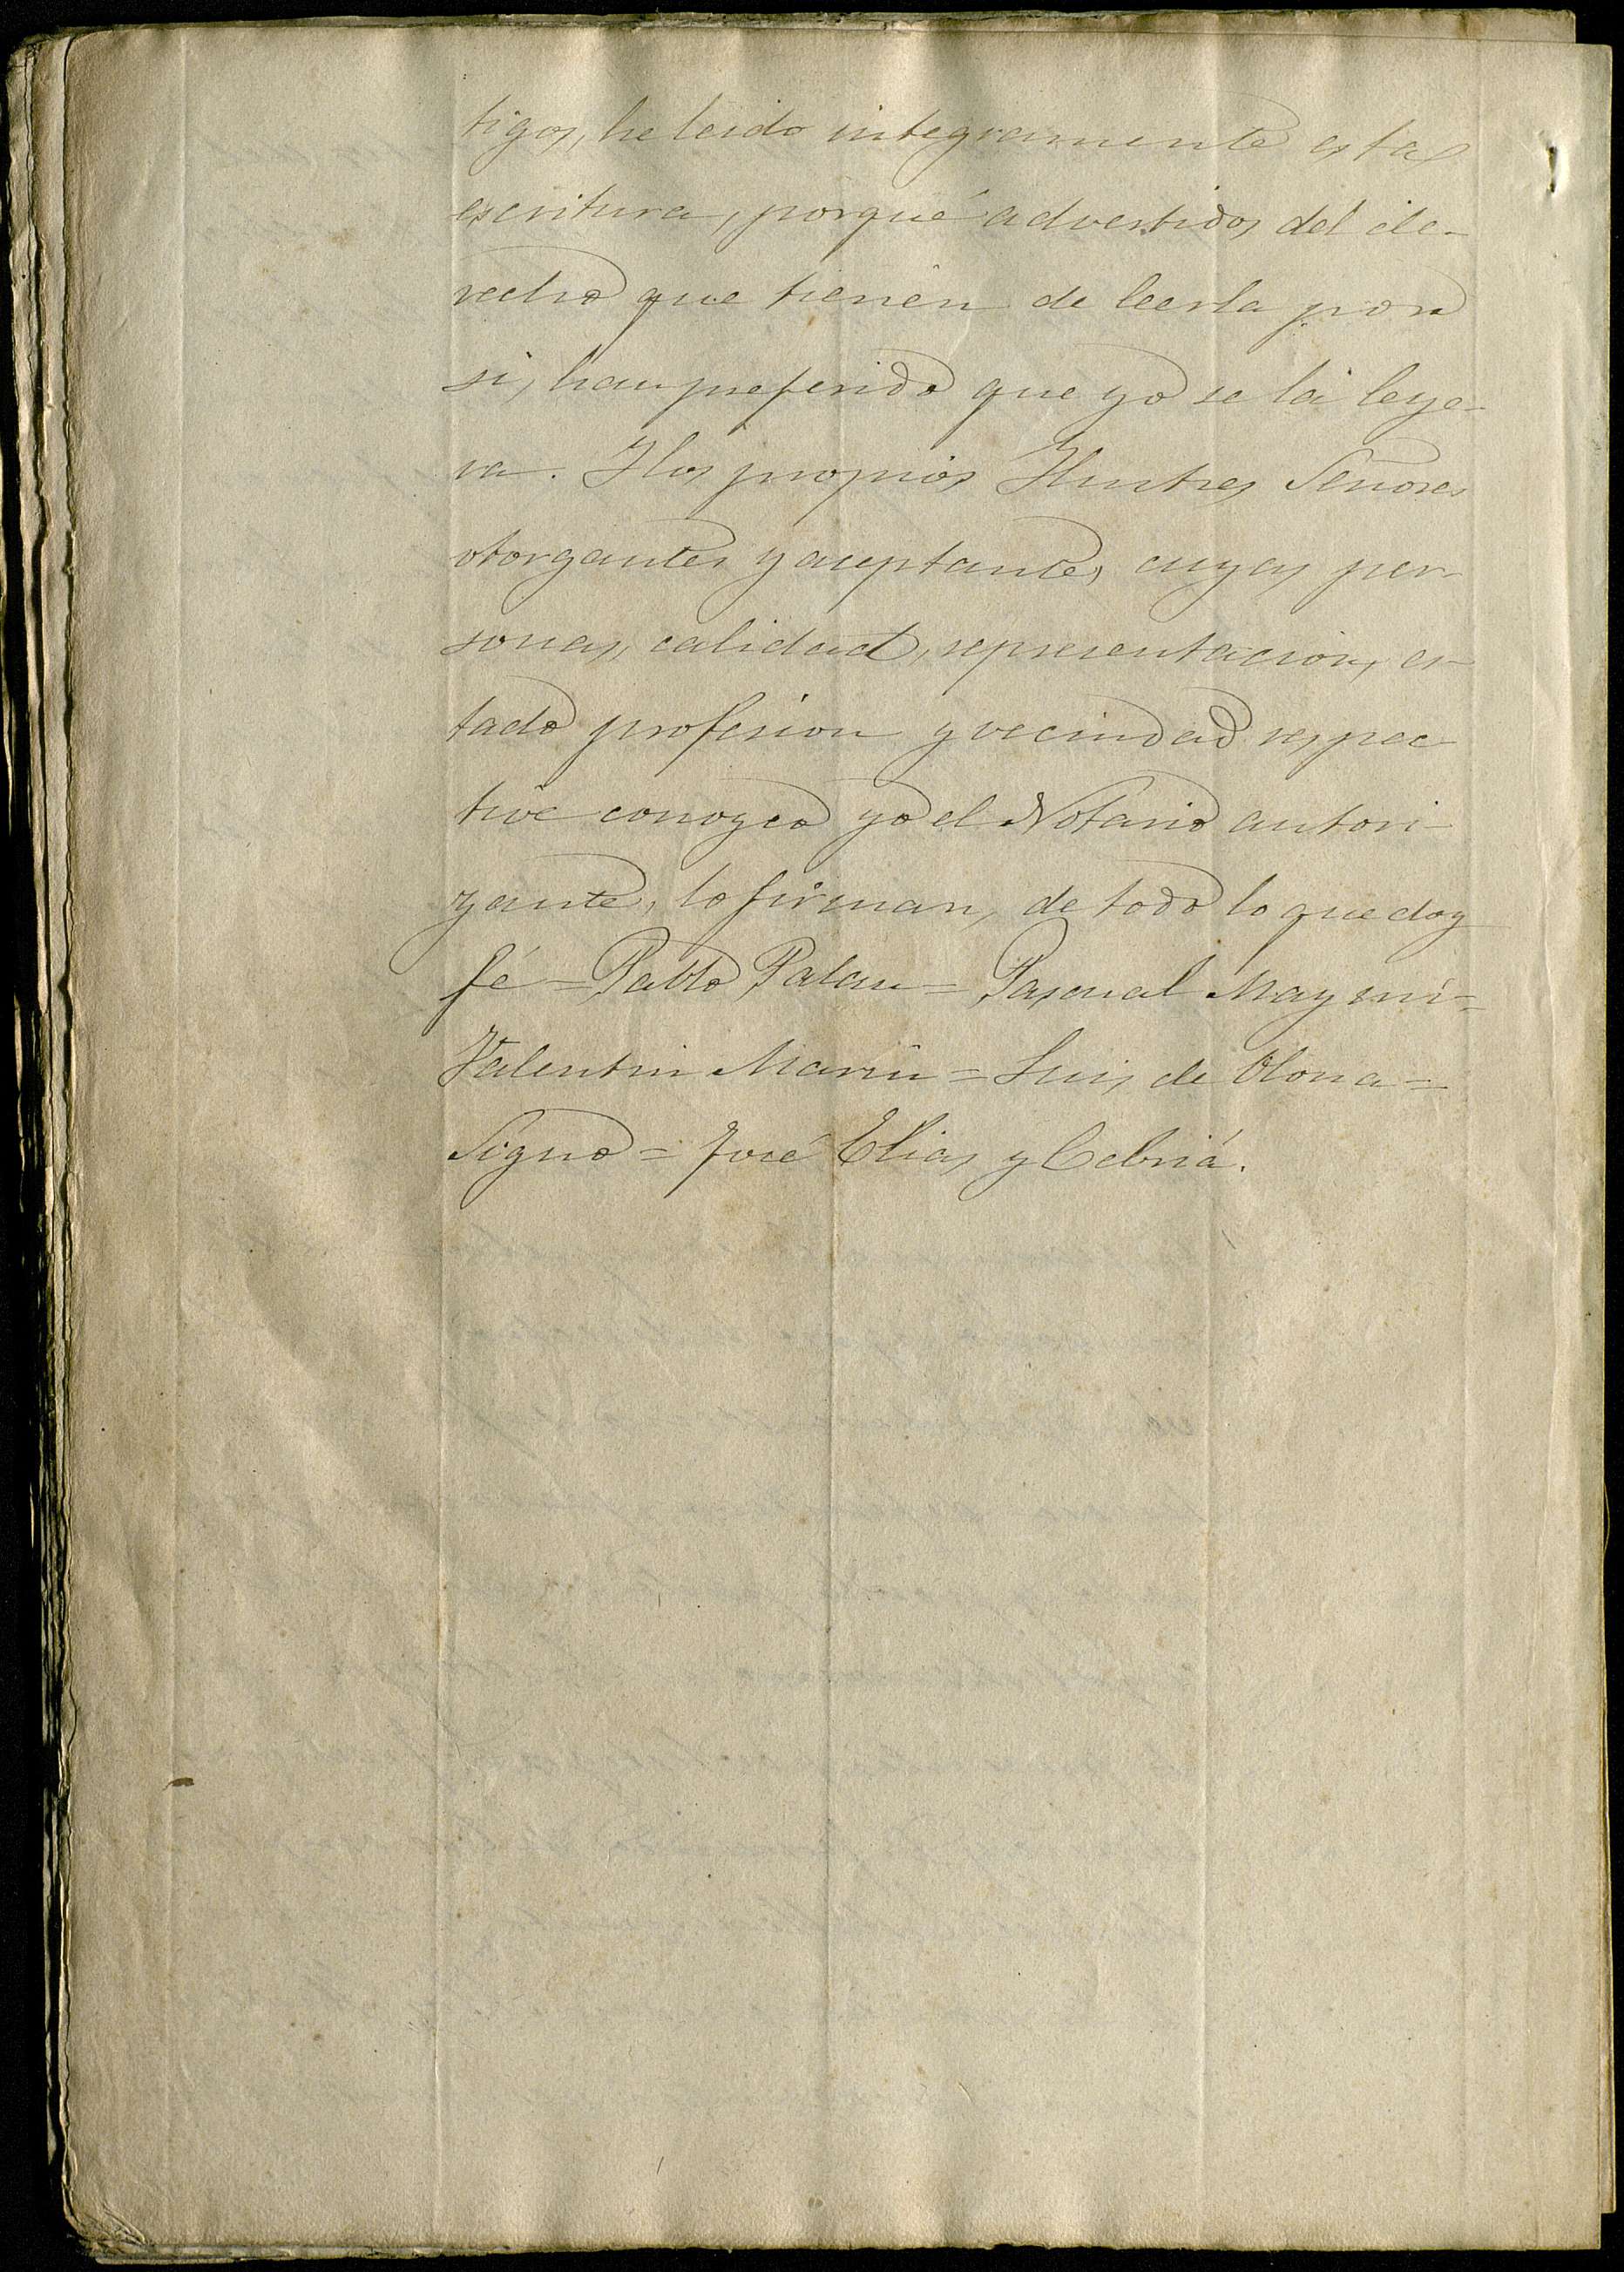 tigos, he leido integramente esta
escritura, porqué advertidos del de-
recho que tienen de leerla por
si, han preferido que yo se la leye-
ra. Y los propios Ilustres Señores
otorgantes y aceptante, cuyas per-
sonas, calidad, representacion, es-
tado profesion y vecindad respec-
tive conozco yo el Notario autori-
zante, lo firman, de todo lo que doy
fé = Pablo Palau = Pascual Maymí =
Valentin Marin = Luis de Olona =
Signo = José Elias y Cebriá.